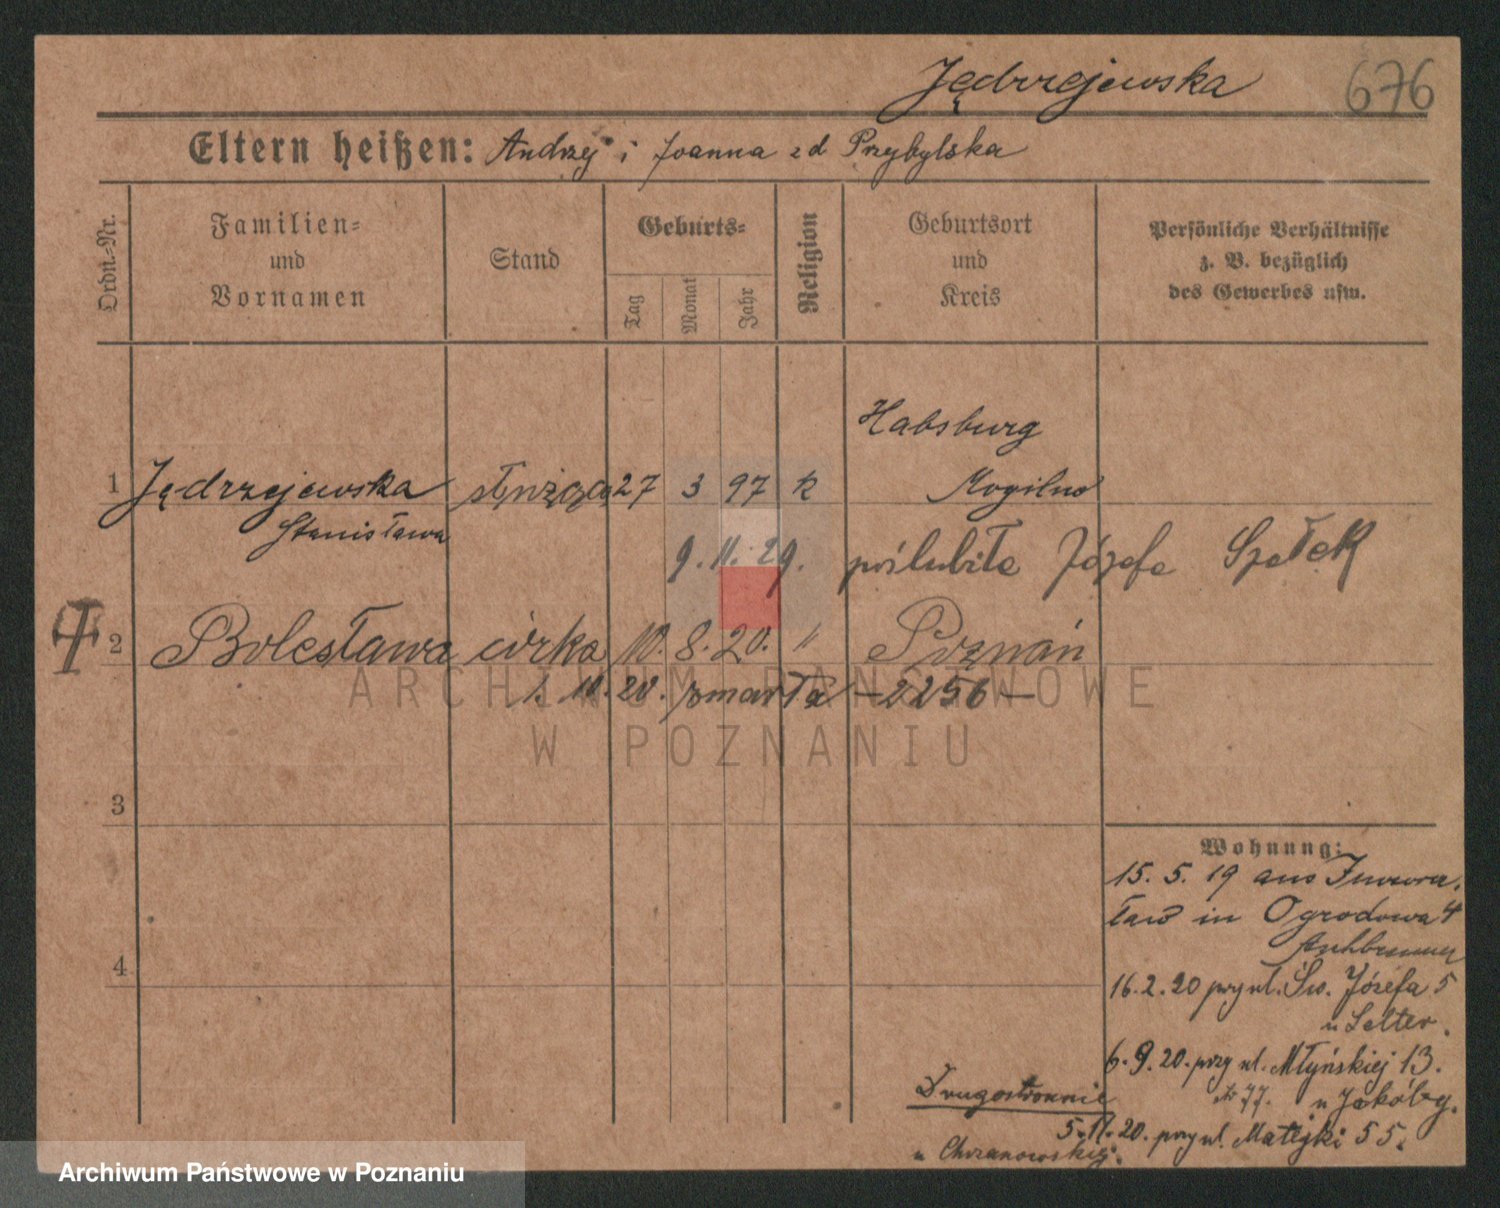 Jędrzejewska 676
Eltern heißen: Andrzej i Joanna zd Przybylska
Ordn.-Nr.
Familien-
und
Vornamen
Stand
Geburts-
Tag
Monat
Jahr
Religion
Geburtsort
und
Kreis
Persönliche Verhältnisse
z. B. bezüglich
des Gewerbes usw.
Habsburg
1 Jędrzejewska służąca 27 3 97 k Mogilno
Stanisława
9. 11. 29. poślubiła Józefa Szełek
2 Bolesława córka 10. 8. 20. " Poznań
1. 10. 20. zmarła – 2256 –
3
4
Wohnung:
15. 5. 19 aus Inowra-
cław in Ogrodowa 4
16. 2. 20 przy ul. Św. Józefa 5
u Selter.
6. 9. 20. przy ul. Młyńskiej 13.
u Jakóby.
Drugostronnie
5. 11. 20. przy ul. Matejki 55.
u Chrzanowskiej.
ARCHIWUM PAŃSTWOWE
W POZNANIU
Archiwum Państwowe w Poznaniu